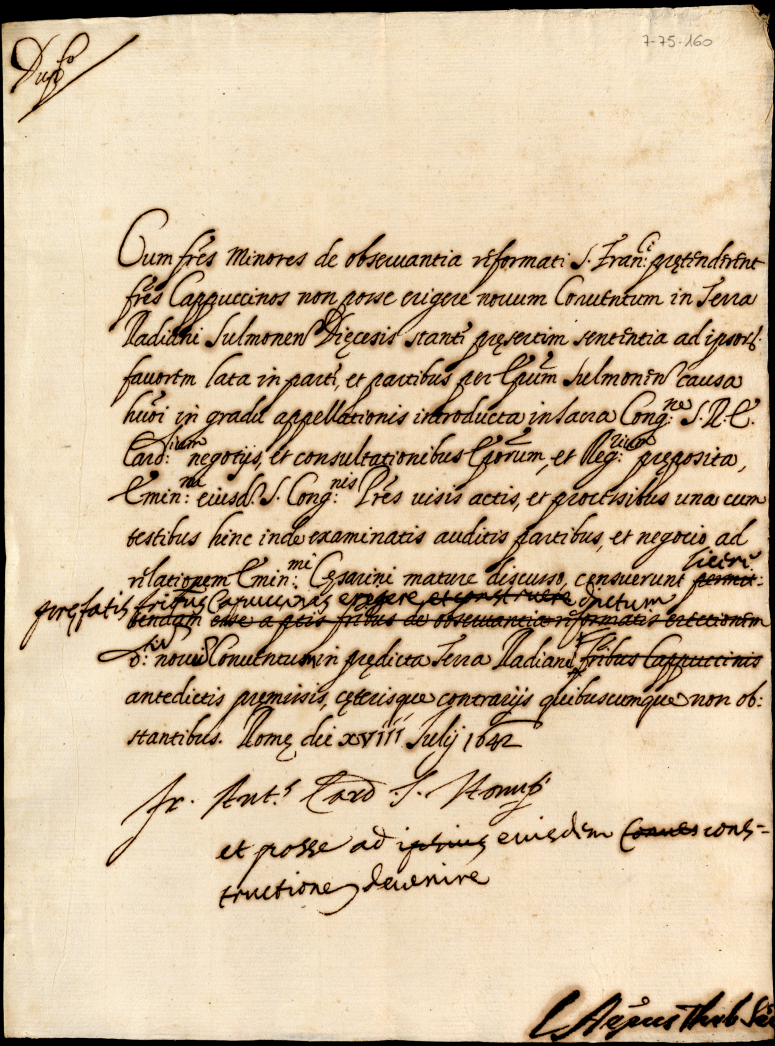 7-75-160
Dupto
Cum frēs Minores de obseruantia reformati S. Franci: prętenderent
frēs Cappuccinos non posse erigere nouum Conuentum in Terra
Radiani Sulmonen Dięcesis stante pręsertim sententia ad ipsor
fauorem lata in parte, et partibus per Epūm Sulmonen causa
huōi in gradu appellationis introducta in Sacra Cong:ne S. R. E.
Card:lium negotijs, et consultationibus Eporum, et Reg:rium pręposita,
Emin:mi eiusd. S. Cong:nis Pres uisis actis, et processibus una cum
testibus hinc inde examinatis auditis partibus, et negocio ad
relationem Emin:mi Cęsarini mature discusso, censuerunt permit: licere
pręfatis fribus Capuccinis eregere et construere dictum
tendam esse a ptis fribus de obseruantia reformatis erectionem
d: noui Conuentum in prędicta Terra Radiani fribus Cappuccinis
antedictis pręmissis, cęterisque contrarijs quibuscumque non ob:
stantibus. Romę die xviii Julij 1642
fr. Ant.s Card S. Honuph
et posse ad ipsius eiusdem Conues cons-
tructione deuenire